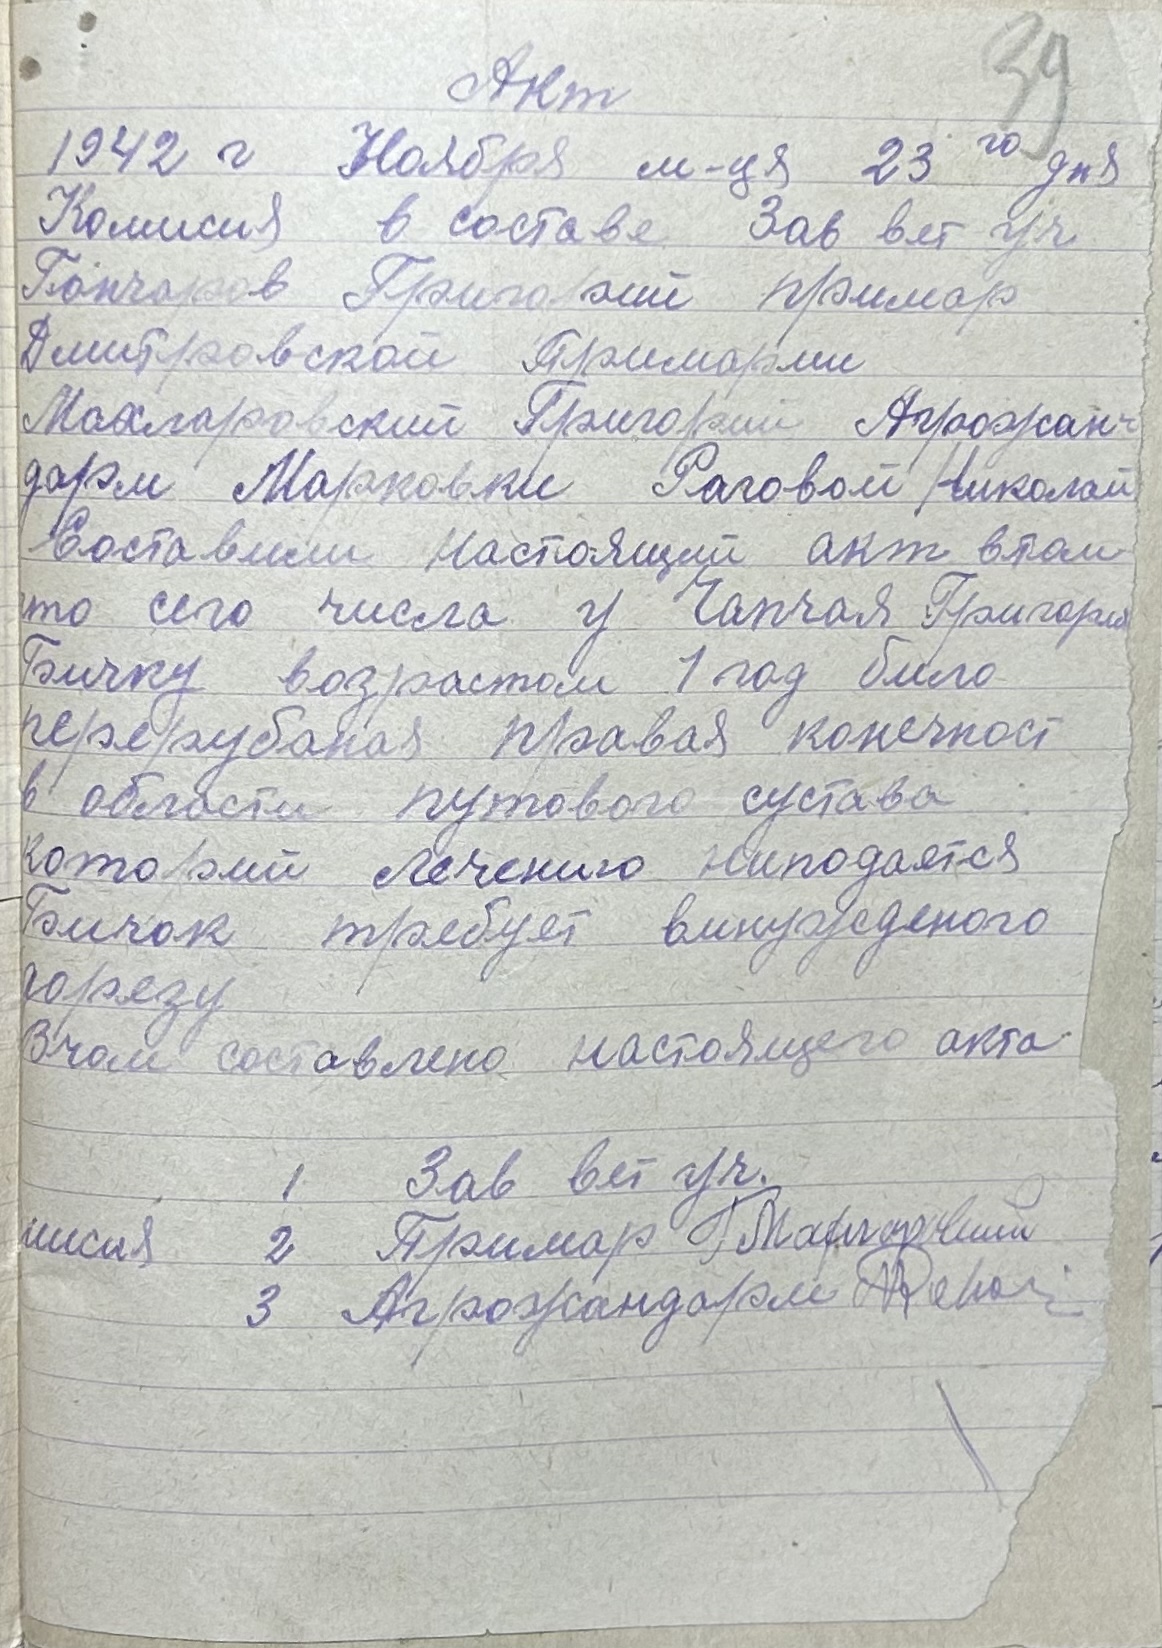 39
Акт
1942 г Ноября м-ця 23 го дня
Комисия в составе Зав вет уч
Гончаров Григорий примар
Дмитровской Примарии
Махларовский Григорий Агрожан
дарм Марковки Раговой Николай
Составили настоящий акт втом
что сего числа у Чапчая Григория
Бичку возрастом 1 год било
перерубаная правая конечност
в области путового сустава
которий лечению ниподается
Бичок требует винужденого
горезу
Вчом составлено настоящего акта
1 Зав вет уч.
мисия 2 Примар
3 Агрожандарм